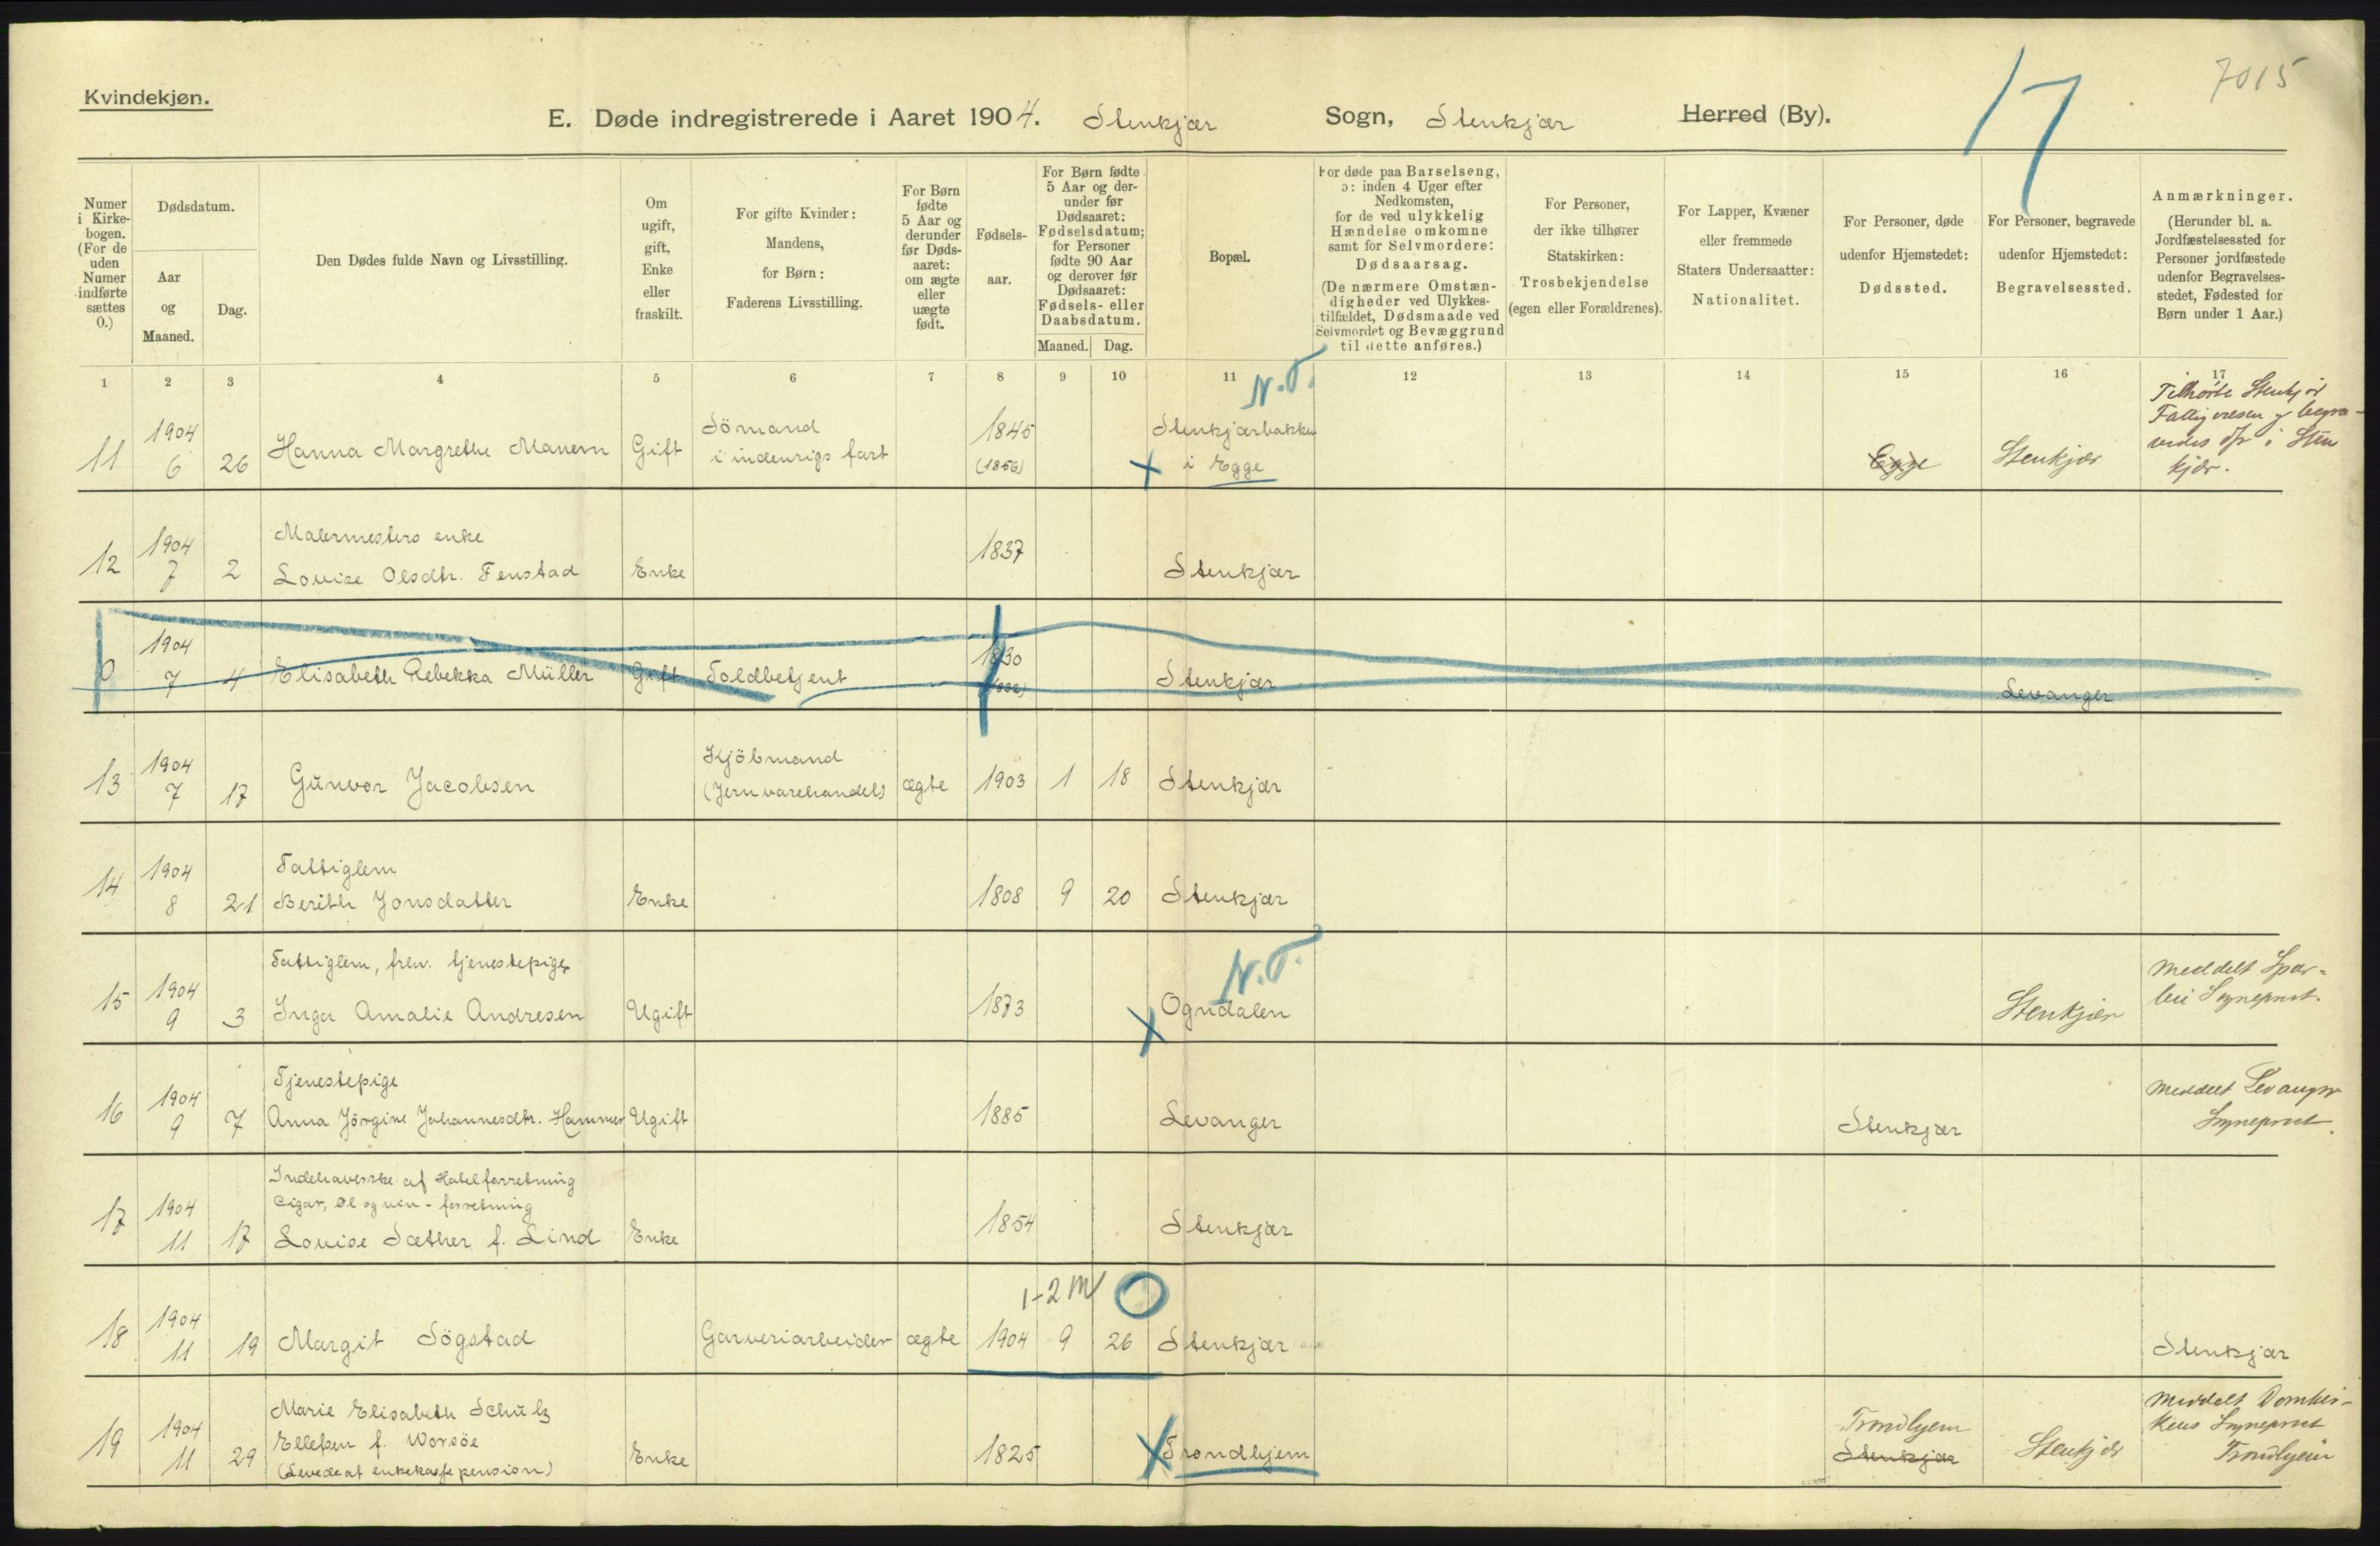 7015
17
Kvindekjøn.
E. Døde indregistrerede i Aaret 1904. Stenkjær Sogn, Stenkjær Herred (By).
Numer i Kirkebogen. (For de uden Numer indførte sættes 0.)
Dødsdatum.
Aar og Maaned.
Dag.
Den Dødes fulde Navn og Livsstilling.
Om ugift, gift, Enke eller fraskilt.
For gifte Kvinder: Mandens, for Børn: Faderens Livsstilling.
For Børn fødte 5 Aar og derunder før Dødsaaret: om ægte eller uægte født.
Fødselsaar.
For Børn fødte 5 Aar og derunder før Dødsaaret: Fødselsdatum; for Personer fødte 90 Aar og derover før Dødsaaret: Fødsels- eller Daabsdatum.
Maaned. Dag.
Bopæl.
For døde paa Barselseng, ɔ: inden 4 Uger efter Nedkomsten, for de ved ulykkelig Hændelse omkomne samt for Selvmordere: Dødsaarsag.
(De nærmere Omstændigheder ved Ulykkestilfældet, Dødsmaade ved Selvmordet og Bevæggrund til dette anføres.)
For Personer, der ikke tilhører Statskirken: Trosbekjendelse (egen eller Forældrenes).
For Lapper, Kvæner eller fremmede Staters Undersaatter: Nationalitet.
For Personer, døde udenfor Hjemstedet: Dødssted.
For Personer, begravede udenfor Hjemstedet: Begravelsessted.
Anmærkninger.
(Herunder bl. a. Jordfæstelsessted for Personer jordfæstede udenfor Begravelsesstedet, Fødested for Børn under 1 Aar.)
1 2 3 4 5 6 7 8 9 10 11 12 13 14 15 16 17
N.T.
11 1904 6 26 Hanna Margrethe Manem Gift Sömand i indenrigs fart 1845 (1856) Stenkjærbakken i Egge Egge Stenkjær
Tilhørte Stenkjær
Fattigvesen og begra-
vedes i Sten
kjær.
12 1904 7 2 Malermesters enke
Lovise Olsdtr. Fenstad Enke 1837 Stenkjær
0 1904 7 4 Elisabeth Rebekka Müller Gift Toldbetjent 1830 Stenkjær Levanger
13 1904 7 17 Gunvor Jacobsen Kjöbmand (Jernvarehandel) ægte 1903 1 18 Stenkjær
14 1904 8 21 Fattiglem
Berith Jonsdatter Enke 1808 9 20 Stenkjær
N.T.
15 1904 9 3 Fattiglem, frev. tjenestepige
Inga Amalie Andresen Ugift 1873 Ogndalen Stenkjær
Meddelt Spar-
bu Sogneprest.
16 1904 9 7 Tjenestepige
Anna Jörgine Johannesdtr. Hammer Ugift 1885 Levanger Stenkjær
Meddelt Levanger
Sogneprest.
17 1904 11 17 Indehaverske af Hotelforretning
Cigar, Øl og vin-forretning
Lovise Sæther f. Lind Enke 1854 Stenkjær
1-2 M
18 1904 11 19 Margit Sögstad Garveriarbeider ægte 1904 9 26 Stenkjær Stenkjær
19 1904 11 29 Marie Elisabeth Schulz
Ellefsen f. Worsöe
(Levede af enkekasse pension) Enke 1825 Trondhjem
Trondhjem
Stenkjær
Stenkjær
Meddelt Domkir-
kens Sogneprest
Trondhjem